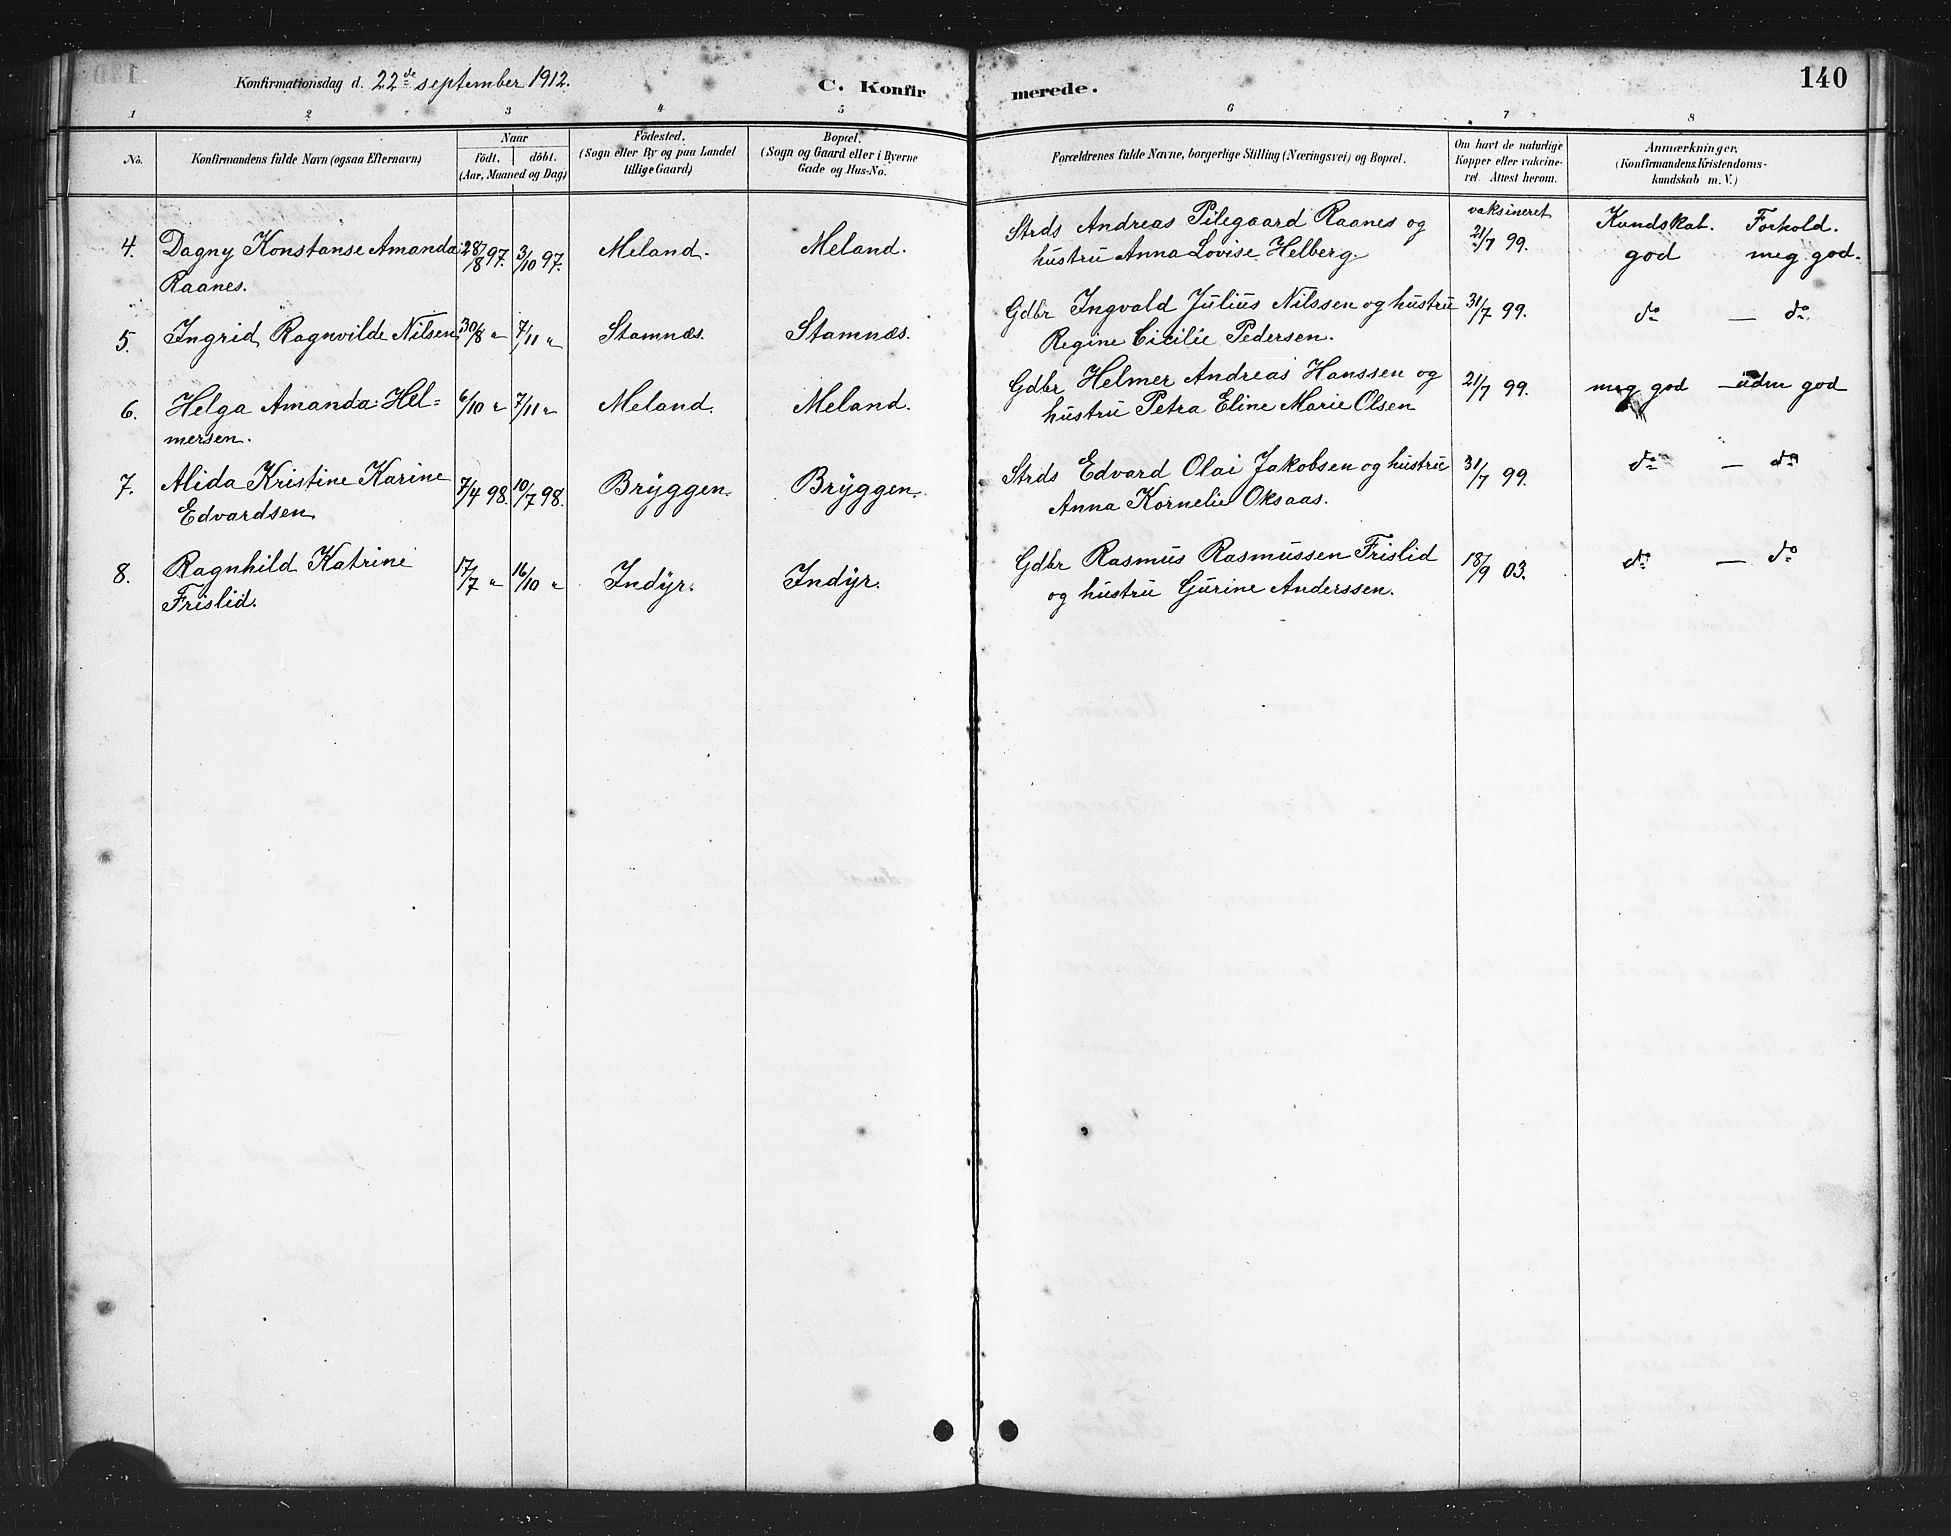 Konfirmationsdag d. 22de september 1912.
C. Konfir merede.
140
1 2 3 4 5 6 7 8
No.
Konfirmandens fulde Navn (ogsaa Efternavn)
Naar
födt. döbt.
(Aar, Maaned og Dag)
Födested.
(Sogn eller By og paa Landet
tillige Gaard)
Bopæl.
(Sogn og Gaard eller i Byerne
Gade og Hus-No.
Forældrenes fulde Navne, borgerlige Stilling (Næringsvei) og Bopæl.
Om havt de naturlige
Kopper eller vakcine-
ret. Attest herom.
Anmærkninger.
(Konfirmandens Kristendoms-
kundskab m. V.)
vaksineret Kundskab. Forhold.
4. Dagny Konstanse Amanda 28/8 97. 3/10 97. Meland. Meland. Strds Andreas Pilegaard Raanes og 21/7 99. god meg god.
Raanes. hustru Anna Lovise Helberg.
5. Ingrid Ragnvilde Nilsen 30/8 " 7/11 " Stamnæs. Stamnæs. Gdbr Ingvald Julius Nilssen og hustru 31/7 99. do — do.
Regine Cicilie Pedersen.
6. Helga Amanda Hel= 6/10 " 7/11 " Meland. Meland. Gdbr Helmer Andreas Hanssen og 21/7 99. meg god god
mersen. hustru Petra Eline Marie Olsen
7. Alida Kristine Karine 7/4 98. 10/7 98. Bryggen. Bryggen. Strds Edvard Olai Jakobsen og hustru 31/7 99. do — do
Edvardsen Anna Kornelie Oksaas.
8. Ragnhild Katrine 17/7 " 16/10 " Indyr. Indyr. Gdbr Rasmus Rasmussen Frislid 18/9 03. do — do
Frislid. og hustru Gurine Anderssen.